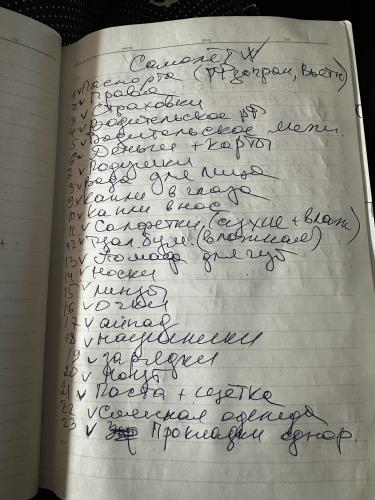 Самолёт
1 ✓ Паспорта (РФ, загран, Вьетн)
2 ✓ Права
3 ✓ Страховки
4 ✓ Водительское рф
5 ✓ Водительское межн.
6 ✓ Деньги + карты
7 ✓ Подушки
8 ✓ Вода для лица
9 ✓ Капли в глаза
10 ✓ Капли в нос
11 ✓ Салфетки (сухие + влаж)
12 ✓ Туал. бум. (влажная)
13 ✓ Помада для губ
14 ✓ Носки
15 ✓ Линзы
16 ✓ Очки
17 ✓ айпад
18 ✓ наушники
19 ✓ зарядки
20 ✓
21 ✓ Паста + щётка
22 ✓ Сменная одежда
23 ✓ Прокладки однор.